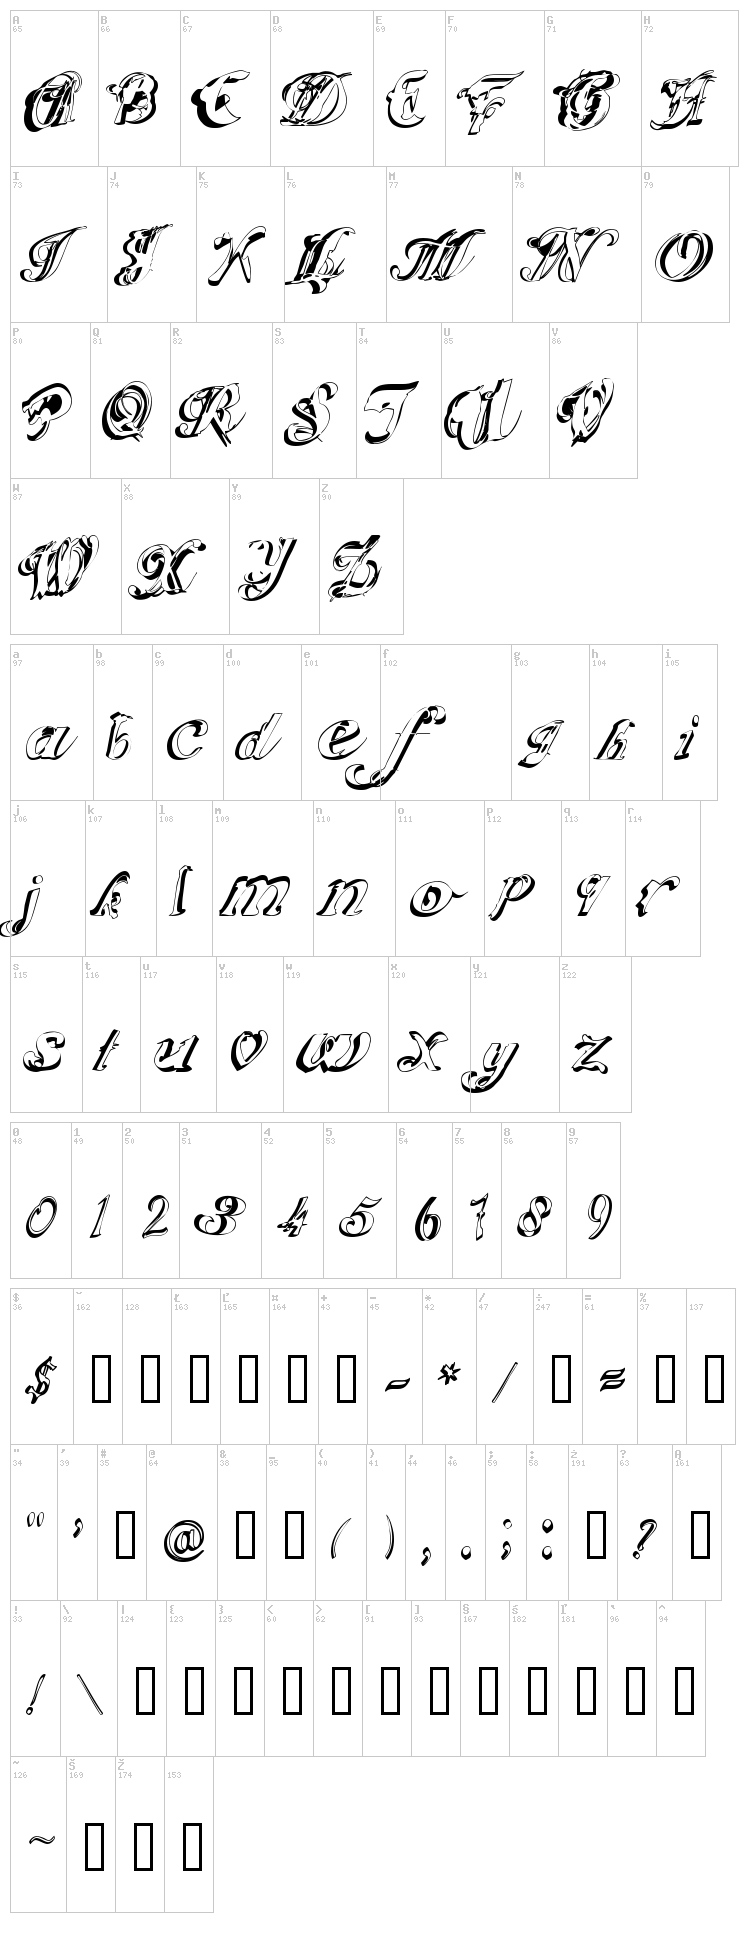 A B C D E F G H
65 66 67 68 69 70 71 72
A B C D E F G H
I J K L M N O
73 74 75 76 77 78 79
I J K L M N O
P Q R S T U V
80 81 82 83 84 85 86
P Q R S T U V
W X Y Z
87 88 89 90
W X Y Z
a b c d e f g h i
97 98 99 100 101 102 103 104 105
a b c d e f g h i
j k l m n o p q r
106 107 108 109 110 111 112 113 114
j k l m n o p q r
s t u v w x y z
115 116 117 118 119 120 121 122
s t u v w x y z
0 1 2 3 4 5 6 7 8 9
48 49 50 51 52 53 54 55 56 57
0 1 2 3 4 5 6 7 8 9
$ ˘ Ł Ľ ¤ + - * / ÷ = %
36 162 128 163 165 164 43 45 42 47 247 61 37 137
$ - * / =
" ' # @ & _ ( ) , . ; : ż ? Ą
34 39 35 64 38 95 40 41 44 46 59 58 191 63 161
" ' @ ( ) , . ; : ?
! \ | { } < > [ ] § ś ľ ` ^
33 92 124 123 125 60 62 91 93 167 182 181 96 94
! \
~ Š Ž
126 169 174 153
~